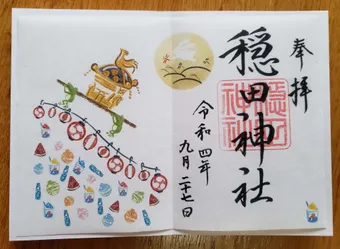 奉拝
穏田神社
令和四年
九月二十七日